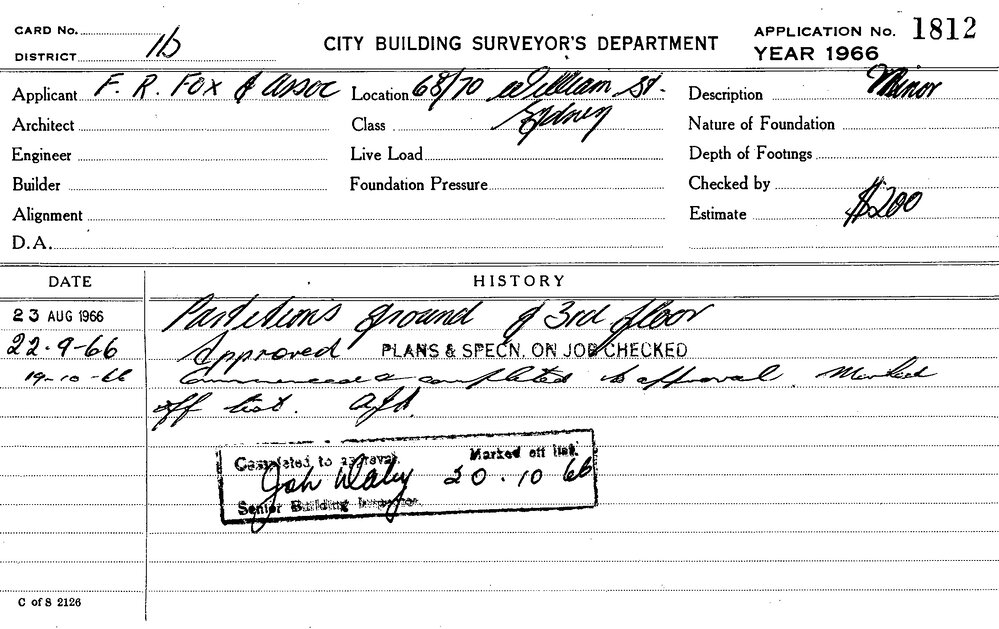 CARD No.
DISTRICT 11b
CITY BUILDING SURVEYOR'S DEPARTMENT
APPLICATION No. 1812
YEAR 1966
Applicant F. R. Fox & Assoc Location 68/70 William St. Description Minor
Architect Class Sydney Nature of Foundation
Engineer Live Load Depth of Footings
Builder Foundation Pressure Checked by
Alignment Estimate $200
D.A.
DATE HISTORY
23 AUG 1966 Partitions ground & 3rd floor
22-9-66 Approved PLANS & SPECN. ON JOB CHECKED
19-10-66 Commenced & completed to approval. Marked
off list.
Completed to approval. Marked off list.
20.10 66
Senior Building Inspector
C of S 2126